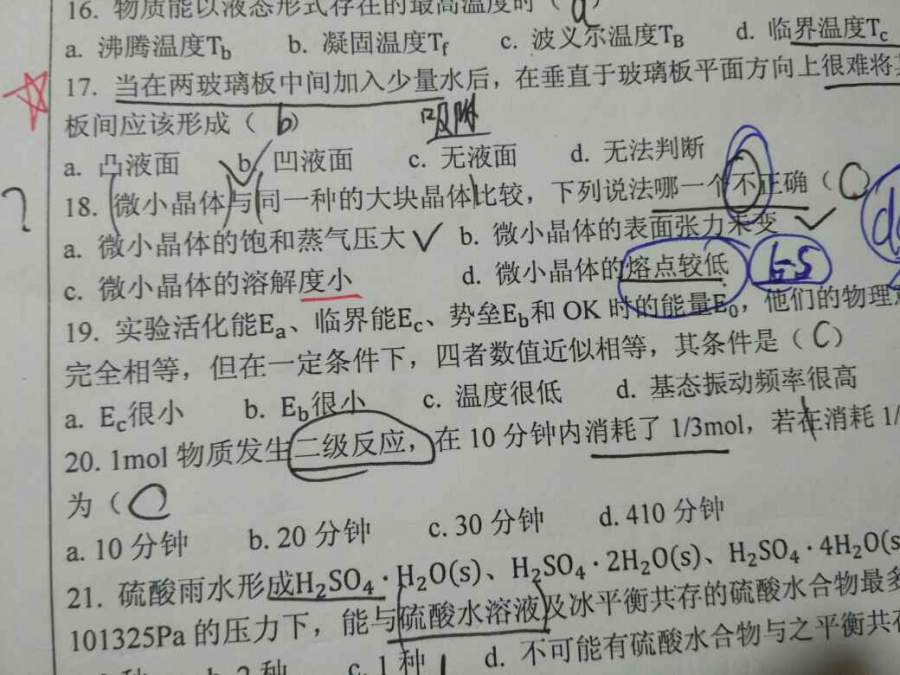 16. 物质能以液态形式存在的最高温度时（a）
a. 沸腾温度Tb b. 凝固温度Tf c. 波义尔温度TB d. 临界温度Tc
17. 当在两玻璃板中间加入少量水后，在垂直于玻璃板平面方向上很难将其
板间应该形成（b） 吸附
a. 凸液面 b. 凹液面 c. 无液面 d. 无法判断
? 18. 微小晶体与同一种的大块晶体比较，下列说法哪一个不正确（
a. 微小晶体的饱和蒸气压大 b. 微小晶体的表面张力未变
c. 微小晶体的溶解度小 d. 微小晶体的熔点较低
19. 实验活化能Ea、临界能Ec、势垒Eb和 OK 时的能量E0，他们的物理意
完全相等，但在一定条件下，四者数值近似相等，其条件是（C）
a. Ec很小 b. Eb很小 c. 温度很低 d. 基态振动频率很高
20. 1mol 物质发生二级反应，在 10 分钟内消耗了 1/3mol，若在消耗 1/
为（
a. 10 分钟 b. 20 分钟 c. 30 分钟 d. 410 分钟
21. 硫酸雨水形成H2SO4·H2O(s)、H2SO4·2H2O(s)、H2SO4·4H2O(s
101325Pa 的压力下，能与硫酸水溶液及冰平衡共存的硫酸水合物最多
种 b. 2 种 c. 1 种 d. 不可能有硫酸水合物与之平衡共存